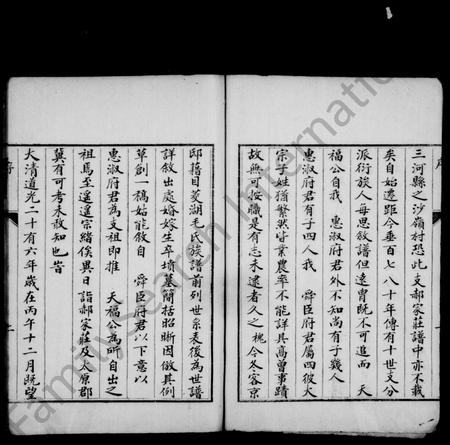 三河縣之沙嶺村恐此支郝家莊譜中亦不載
矣自始遷距今垂百七八十年傳有十世支分
派衍族人毎思敘譜但遠胄既不可追而 天
福公自我 惠淑府君外不知尚有子幾人
惠淑府君有子四人我 舜臣府君屬四彼大
宗子姓猶繁然皆業農率不能詳其高曾事蹟
故無可按懺是有志未逮者久之 槐今冬客京
邸藉目菱湖毛氏族譜前列世系表後為世譜
詳敘出處婚嫁生卒墳墓簡括昭晰因倣其例
草創一稿始能敘自 舜臣府君以下意以
惠淑府君為支祖即推 天福公為所自出之
祖焉至遥遥宗緒俟異日詣郝家莊及太原郡
冀有可考未敢知也 旹
大清道光二十有六年歲在丙午十二月既望
序
FamilySearch International